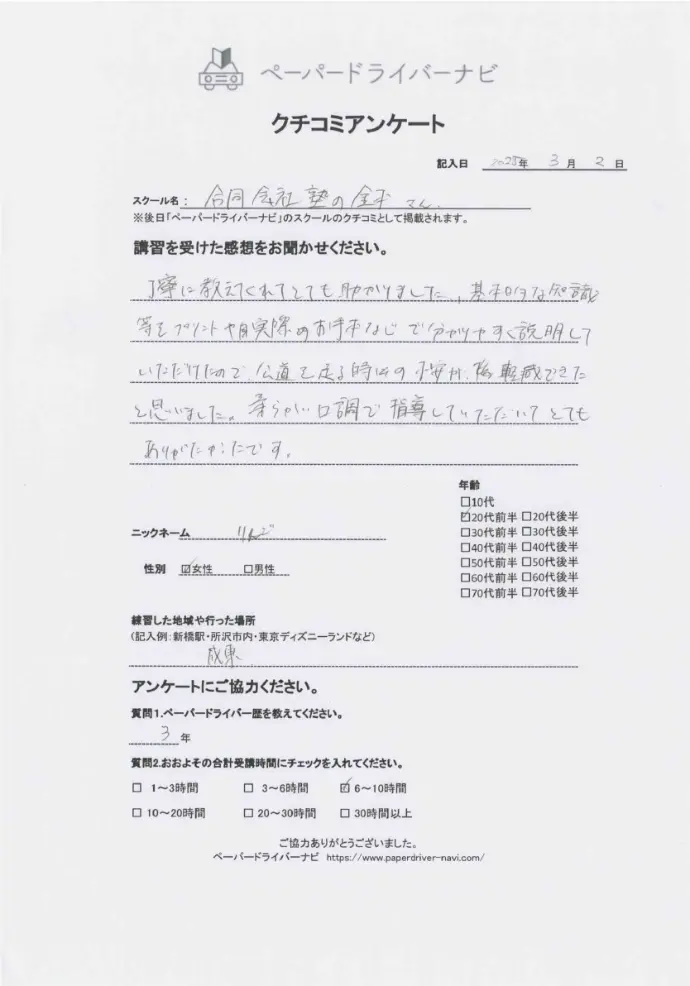 ペーパードライバーナビ
クチコミアンケート
記入日 2025年 3月 2日
スクール名： 合同会社塾の さん
※後日「ペーパードライバーナビ」のスクールのクチコミとして掲載されます。
講習を受けた感想をお聞かせください。
丁寧に教えてくれてとても助かりました、基本的な知識
等をプリントや実際のお手本などで分かりやすく説明して
いただけたので、公道で走る時の不安が、軽減できた
と思いました。柔らかい口調で指導していただいてとても
ありがたかったです。
年齢
□10代
☑20代前半 □20代後半
□30代前半 □30代後半
ニックネーム りんご
□40代前半 □40代後半
□50代前半 □50代後半
性別 ☑女性 □男性
□60代前半 □60代後半
□70代前半 □70代後半
練習した地域や行った場所
(記入例：新橋駅・所沢市内・東京ディズニーランドなど)
成東
アンケートにご協力ください。
質問1.ペーパードライバー歴を教えてください。
3 年
質問2.おおよその合計受講時間にチェックを入れてください。
□ 1～3時間 □ 3～6時間 ☑ 6～10時間
□ 10～20時間 □ 20～30時間 □ 30時間以上
ご協力ありがとうございました。
ペーパードライバーナビ https://www.paperdriver-navi.com/